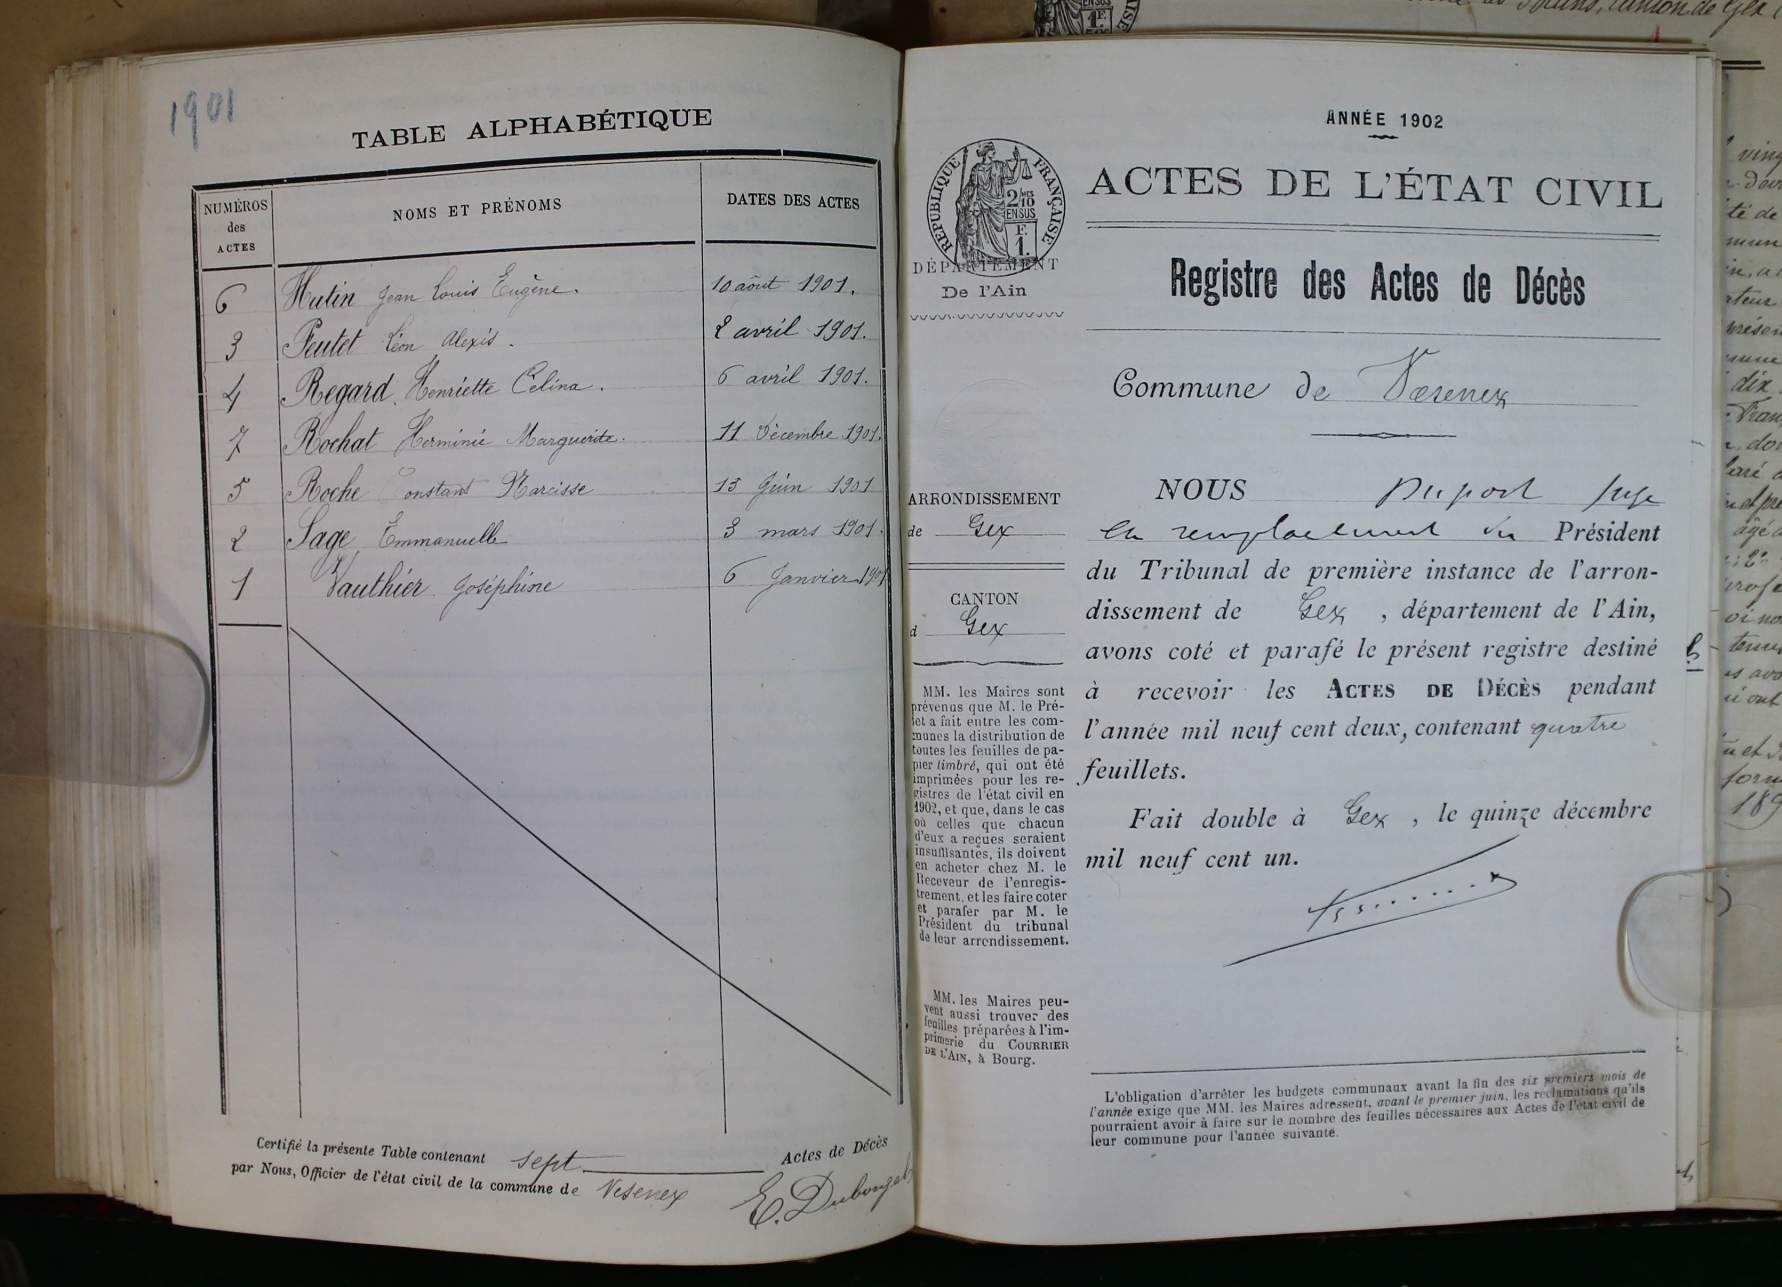 1901
TABLE ALPHABÉTIQUE
NUMÉROS des ACTES
NOMS ET PRÉNOMS
DATES DES ACTES
6 Hutin Jean Louis Eugène. 10 août 1901.
3 Peutet Léon Alexis. 2 avril 1901.
4 Regard Henriette Célina. 6 avril 1901.
7 Rochat Herminie Marguerite. 11 Décembre 1901.
5 Roche Constant Narcisse 15 Juin 1901
2 Sage Emmanuelle 3 mars 1901.
1 Vauthier Joséphine 6 Janvier 1901
Certifié la présente Table contenant sept Actes de Décès
par Nous, Officier de l'état civil de la commune de Vesenex
ANNÉE 1902
RÉPUBLIQUE FRANÇAISE
2/10 EN SUS
F. 1
DÉPARTEMENT
De l'Ain
ARRONDISSEMENT
de Gex
CANTON
d Gex
MM. les Maires sont
prévenus que M. le Pré-
fet a fait entre les com-
munes la distribution de
toutes les feuilles de pa-
pier timbré, qui ont été
imprimées pour les re-
gistres de l'état civil en
1902, et que, dans le cas
où celles que chacun
d'eux a reçues seraient
insuffisantes, ils doivent
en acheter chez M. le
Receveur de l'enregis-
trement, et les faire coter
et parafer par M. le
Président du tribunal
de leur arrondissement.
MM. les Maires peu-
vent aussi trouver des
feuilles préparées à l'im-
primerie du COURRIER
DE L'AIN, à Bourg.
ACTES DE L'ÉTAT CIVIL
Registre des Actes de Décès
Commune de Vesenex
NOUS Dupont juge
en remplacement du Président
du Tribunal de première instance de l'arron-
dissement de Gex, département de l'Ain,
avons coté et parafé le présent registre destiné
à recevoir les ACTES DE DÉCÈS pendant
l'année mil neuf cent deux, contenant quatre
feuillets.
Fait double à Gex, le quinze décembre
mil neuf cent un.
L'obligation d'arrêter les budgets communaux avant la fin des six premiers mois de
l'année exige que MM. les Maires adressent, avant le premier juin, les réclamations qu'ils
pourraient avoir à faire sur le nombre des feuilles nécessaires aux Actes de l'état civil de
leur commune pour l'année suivante.